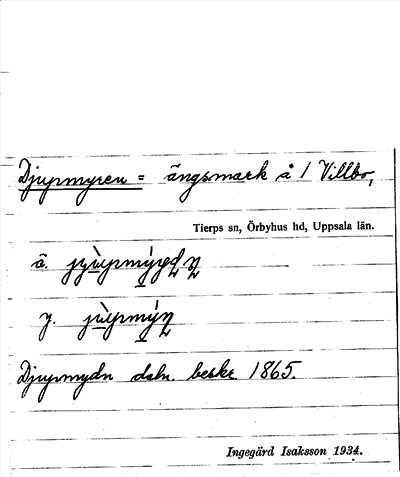 Djupmyren = ängsmark å 1 Villbo,
Tierps sn, Örbyhus hd, Uppsala län.
ä.
y.
Djupmydn dsbn. beskr 1865.
Ingegärd Isaksson 1934.